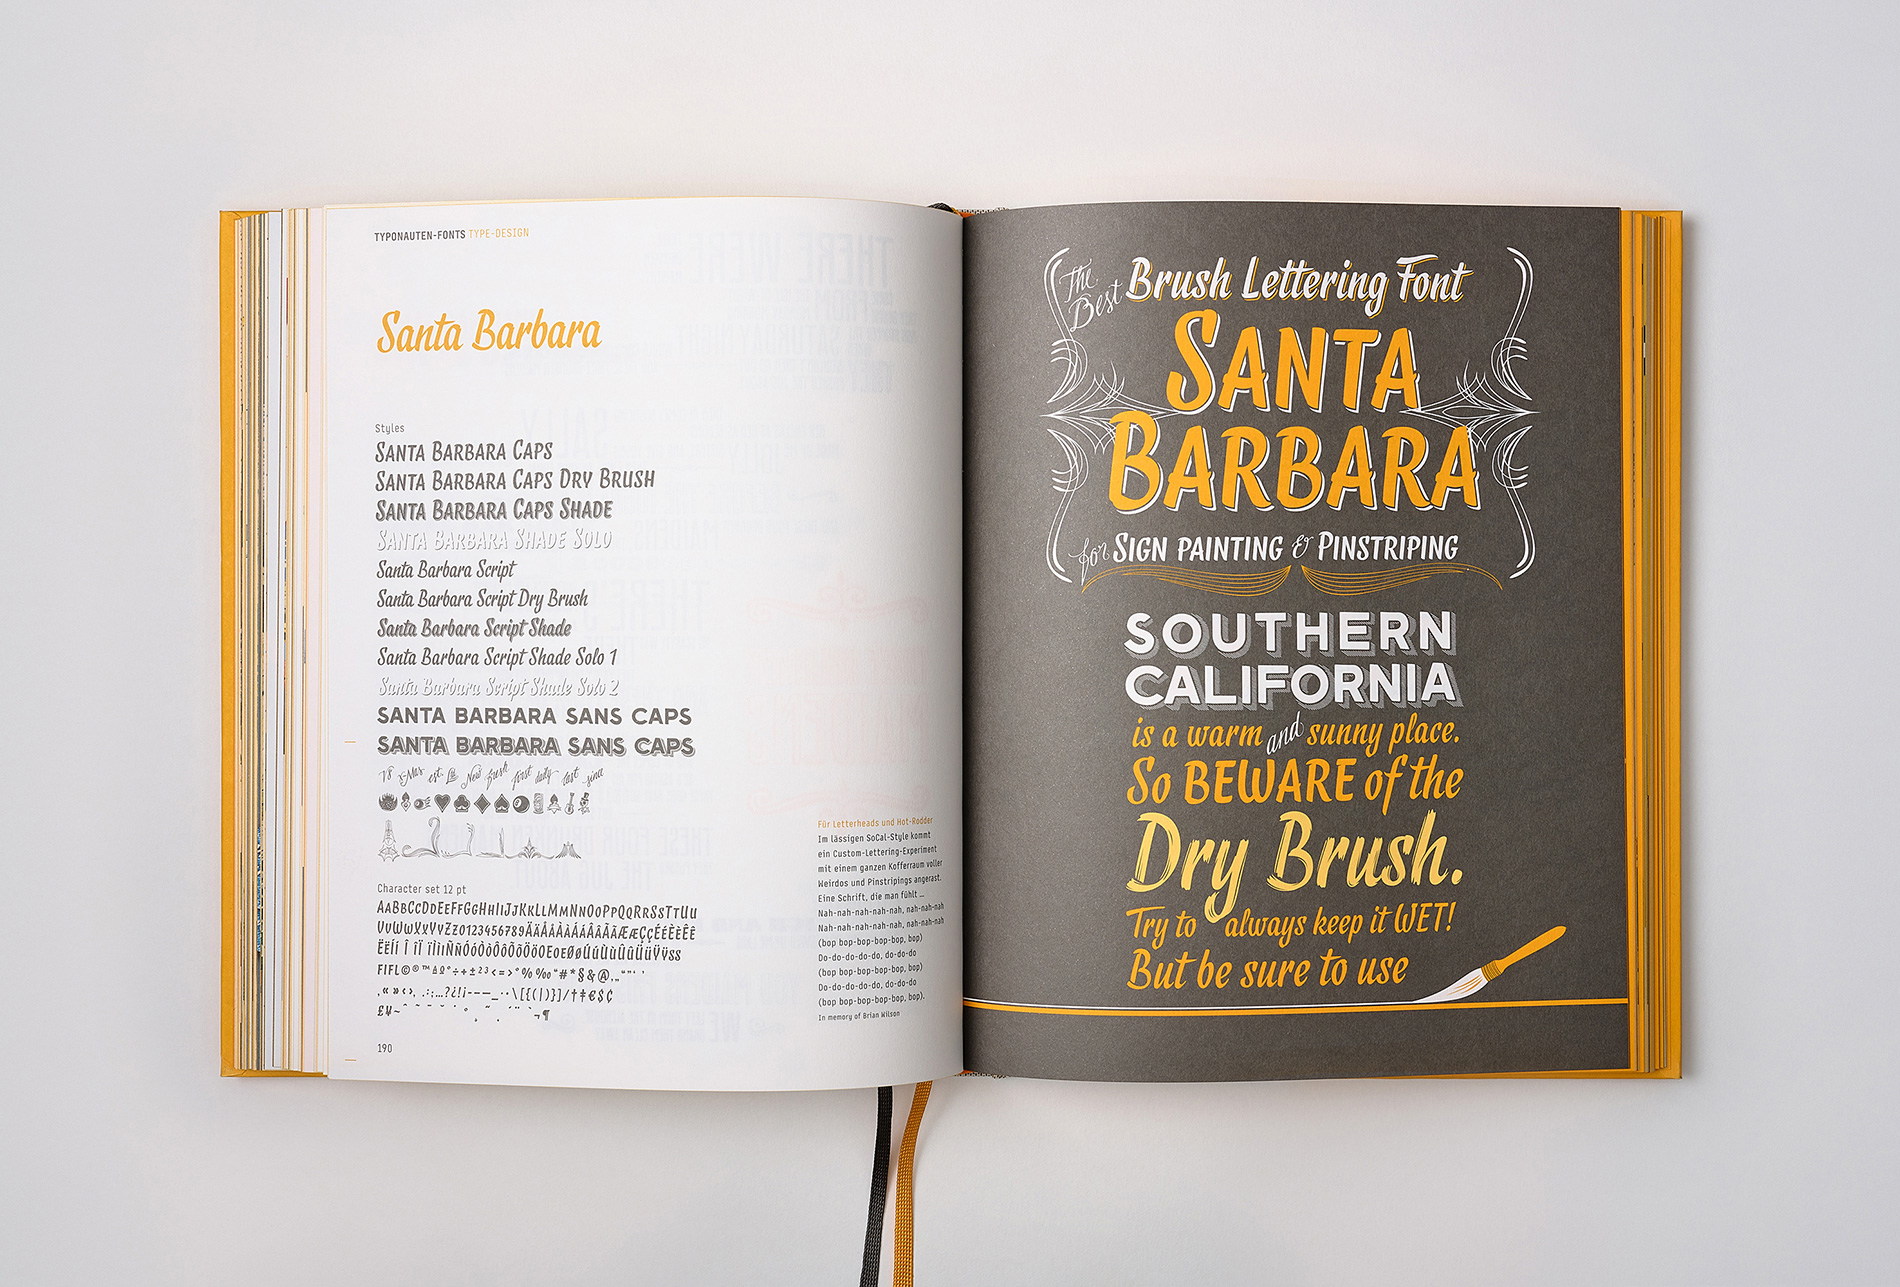 TYPONAUTEN-FONTS TYPE-DESIGN
Santa Barbara
Styles
SANTA BARBARA CAPS
SANTA BARBARA CAPS DRY BRUSH
SANTA BARBARA CAPS SHADE
SANTA BARBARA SHADE SOLO
Santa Barbara Script
Santa Barbara Script Dry Brush
Santa Barbara Script Shade
Santa Barbara Script Shade Solo 1
Santa Barbara Script Shade Solo 2
SANTA BARBARA SANS CAPS
SANTA BARBARA SANS CAPS
V8 X-Mas est. New fresh first daily fast since
Character set 12 pt
AaBbCcDdEeFfGgHhIiJjKkLlMmNnOoPpQqRrSsTtUu
VvWwXxYyZz0123456789
190
Für Letterheads und Hot-Rodder
Im lässigen SoCal-Style kommt
ein Custom-Lettering-Experiment
mit einem ganzen Kofferraum voller
Weirdos und Pinstripings angerast.
Eine Schrift, die man fühlt ...
Nah-nah-nah-nah-nah, nah-nah-nah
Nah-nah-nah-nah-nah, nah-nah-nah
(bop bop-bop-bop-bop, bop)
Do-do-do-do-do, do-do-do
(bop bop-bop-bop-bop, bop)
Do-do-do-do-do, do-do-do
(bop bop-bop-bop-bop, bop).
In memory of Brian Wilson
The Best Brush Lettering Font
SANTA
BARBARA
for SIGN PAINTING & PINSTRIPING
SOUTHERN
CALIFORNIA
is a warm and sunny place.
So BEWARE of the
Dry Brush.
Try to always keep it WET!
But be sure to use